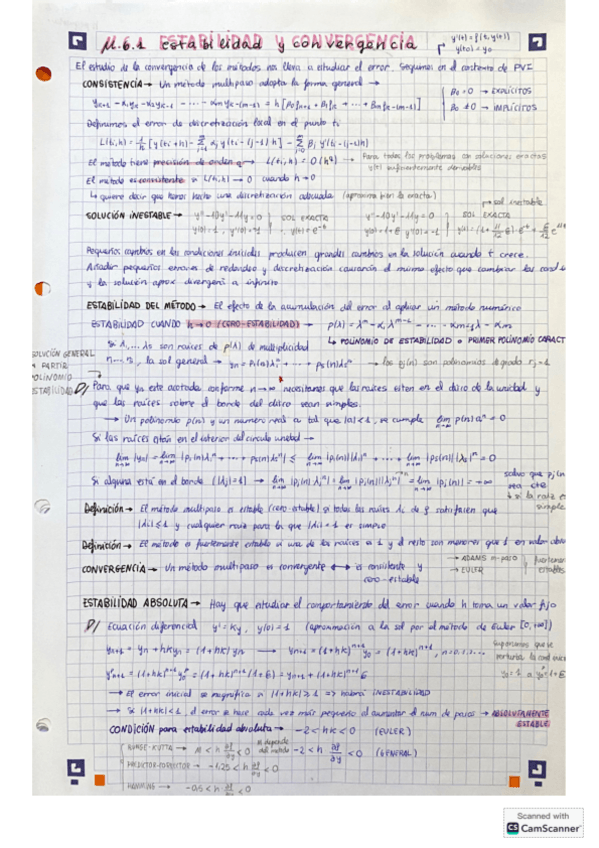 µ.6.1 Estabilidad y convergencia
y'(t) = f(t, y(t))
y(t0) = y0
El estudio de la convergencia de los métodos nos lleva a estudiar el error. Seguimos en el contexto de PVI
CONSISTENCIA → Un método multipaso adopta la forma general →
β0 = 0 → EXPLÍCITOS
β0 ≠ 0 → IMPLÍCITOS
Definimos el error de discretización local en el punto ti
El método tiene precisión de orden q → L(ti,h) = O(h^q) → Para todos los problemas con soluciones exactas
y(t) suficientemente derivables
El método es consistente si L(ti,h) → 0 cuando h → 0
↳ quiere decir que hemos hecho una discretización adecuada (aproxima bien la exacta)
→ sol inestable
SOLUCIÓN INESTABLE → y''-10y'-11y=0 SOL EXACTA y''-10y'-11y=0 SOL EXACTA
Pequeños cambios en las condiciones iniciales producen grandes cambios en la solución cuando t crece.
Añadir pequeños errores de redondeo y discretización causarán el mismo efecto que cambiar las cond
y la solución aprox divergerá a infinito
ESTABILIDAD DEL MÉTODO → El efecto de la acumulación del error al aplicar un método numérico
ESTABILIDAD CUANDO h→0 (CERO-ESTABILIDAD) →
Si λ1,...,λs son raíces de p(λ) de multiplicidad
↳ POLINOMIO DE ESTABILIDAD o PRIMER POLINOMIO CARACT
la sol general → yn = P1(n)λ1^n + ... + Ps(n)λs^n → los pj(n) son polinomios de grado rj-1
SOLUCIÓN GENERAL
A PARTIR
POLINOMIO
ESTABILIDAD
D/ Para que yn esté acotada conforme n→∞ necesitamos que las raíces estén en el disco de la unidad y
que las raíces sobre el borde del disco sean simples.
→ Un polinomio p(n) y un número real a tal que |a|<1, se cumple lim p(n)a^n = 0
Si las raíces están en el interior del círculo unidad →
lim |yn| = lim |P1(n)λ1^n + ... + Ps(n)λs^n| ≤ lim |P1(n)||λ1|^n + ... + lim |Ps(n)||λs|^n = 0
Si alguna está en el borde (|λj|=1) → lim |pj(n)λj^n| = lim |pj(n)||λj|^n = lim |pj(n)| = +∞
salvo que pj(n)
sea cte
↳ si la raíz es
simple
Definición → El método multipaso es estable (cero-estable) si todas las raíces λi de p satisfacen que
|λi| ≤ 1 y cualquier raíz para la que |λi| = 1 es simple
Definición → El método es fuertemente estable si una de las raíces es 1 y el resto son menores que 1 en valor abso
CONVERGENCIA → Un método multipaso es convergente ↔ es consistente y
cero-estable
→ ADAMS m-paso
→ EULER
fuertemen
estables
ESTABILIDAD ABSOLUTA → Hay que estudiar el comportamiento del error cuando h toma un valor fijo
D/ Ecuación diferencial y' = Ky, y(0)=1 (aproximación a la sol por el método de Euler [0,+∞))
yn+1 = yn + hKyn = (1+hK)yn → yn+1 = (1+hK)^n+1 y0 = (1+hK)^n+1, n=0,1,...
Suponemos que se
perturba la cond inicia
y0=1 a y0*=1+ε
y*n+1 = (1+hK)^n+1 y0* = (1+hK)^n+1 (1+ε) = yn+1 + (1+hK)^n+1 ε
→ El error inicial se magnifica si |1+hK| ≥ 1 => habrá INESTABILIDAD
→ Si |1+hK|<1, el error se hace cada vez más pequeño al aumentar el num de pasos → ABSOLUTAMENTE
ESTABLE
CONDICIÓN para estabilidad absoluta → -2 < hK < 0 (EULER)
RUNGE-KUTTA → M < h ∂f/∂y < 0 M depende
del método -2 < h ∂f/∂y < 0 (GENERAL)
PREDICTOR-CORRECTOR → -1,25 < h ∂f/∂y < 0
HAMMING → -0,5 < h ∂f/∂y < 0
Scanned with
CS CamScanner